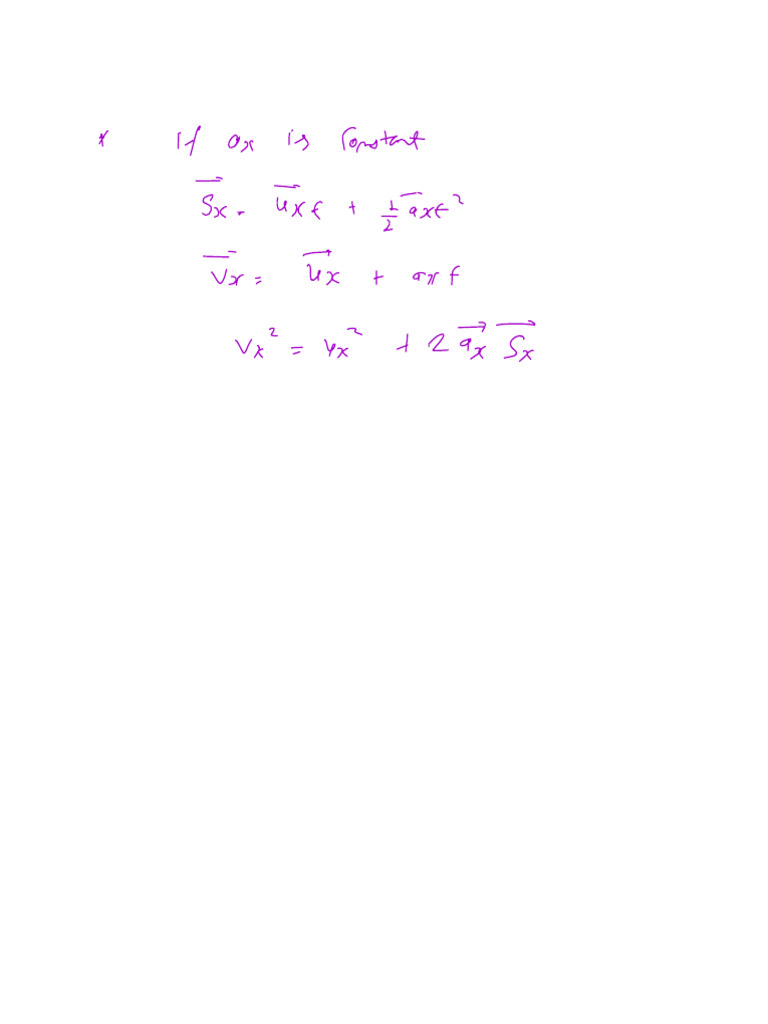 * If ax is Constant
S⃗x = u⃗x t + 1/2 a⃗x t²
V⃗x = u⃗x + ax t
Vx² = ux² + 2 a⃗x S⃗x